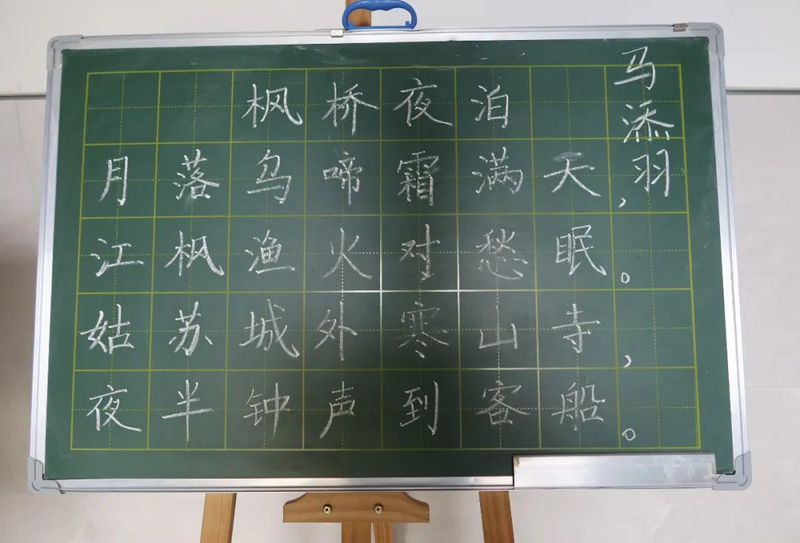 枫桥夜泊
马添羽
月落乌啼霜满天，
江枫渔火对愁眠。
姑苏城外寒山寺，
夜半钟声到客船。